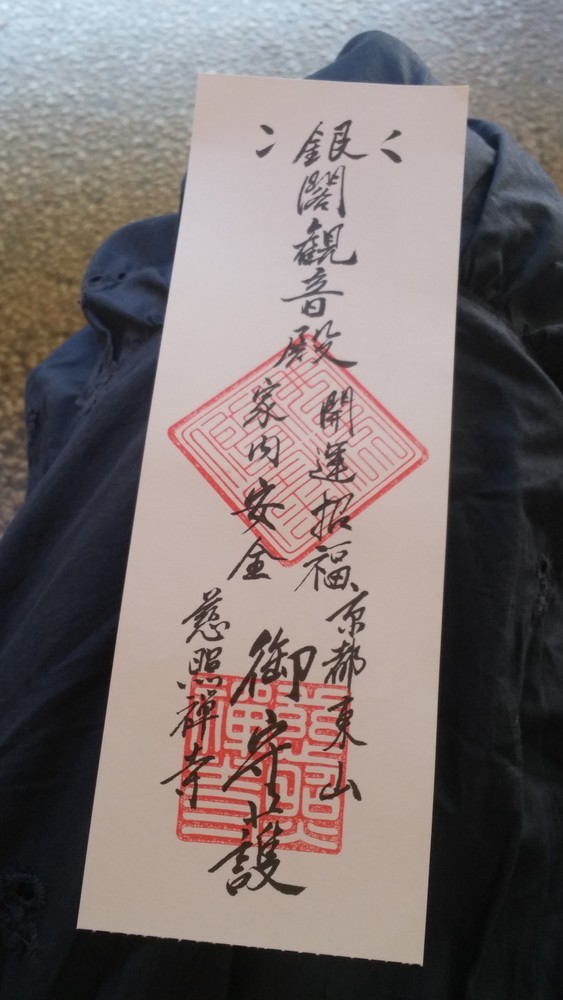 銀閣観音殿
開運招福
家内安全
京都東山
御守護
慈照禅寺
慈照
禅寺